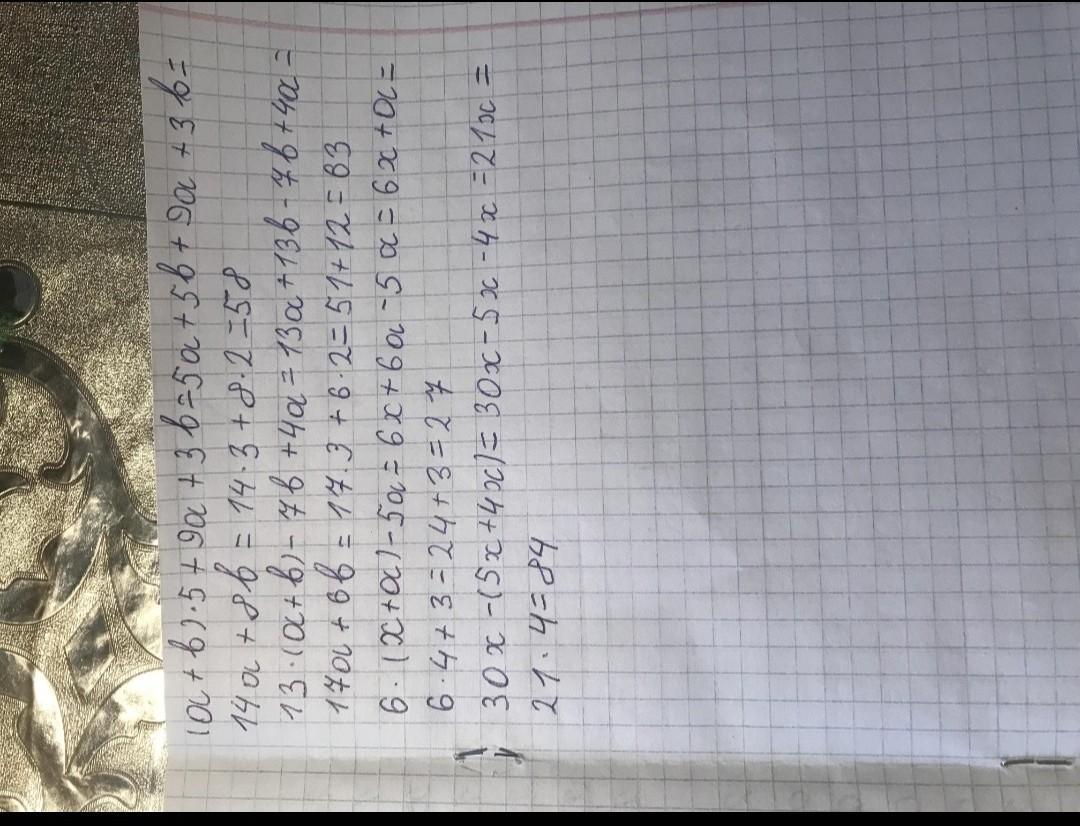 (a+b)·5+9a+3b=5a+5b+9a+3b=
14a+8b=14·3+8·2=58
13·(a+b)-7b+4a=13a+13b-7b+4a=
17a+6b=17·3+6·2=51+12=63
6·(x+a)-5a=6x+6a-5a=6x+a=
6·4+3=24+3=27
30x-(5x+4x)=30x-5x-4x=21x=
21·4=84